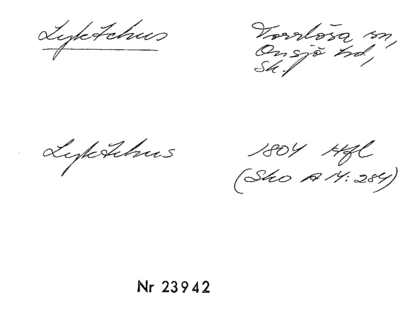 Lyktehus Torrlösa sn,
Onsjö hd,
Sk.
Lyktehus 1804 Hfl
(Sko A IV: 284)
Nr 23942